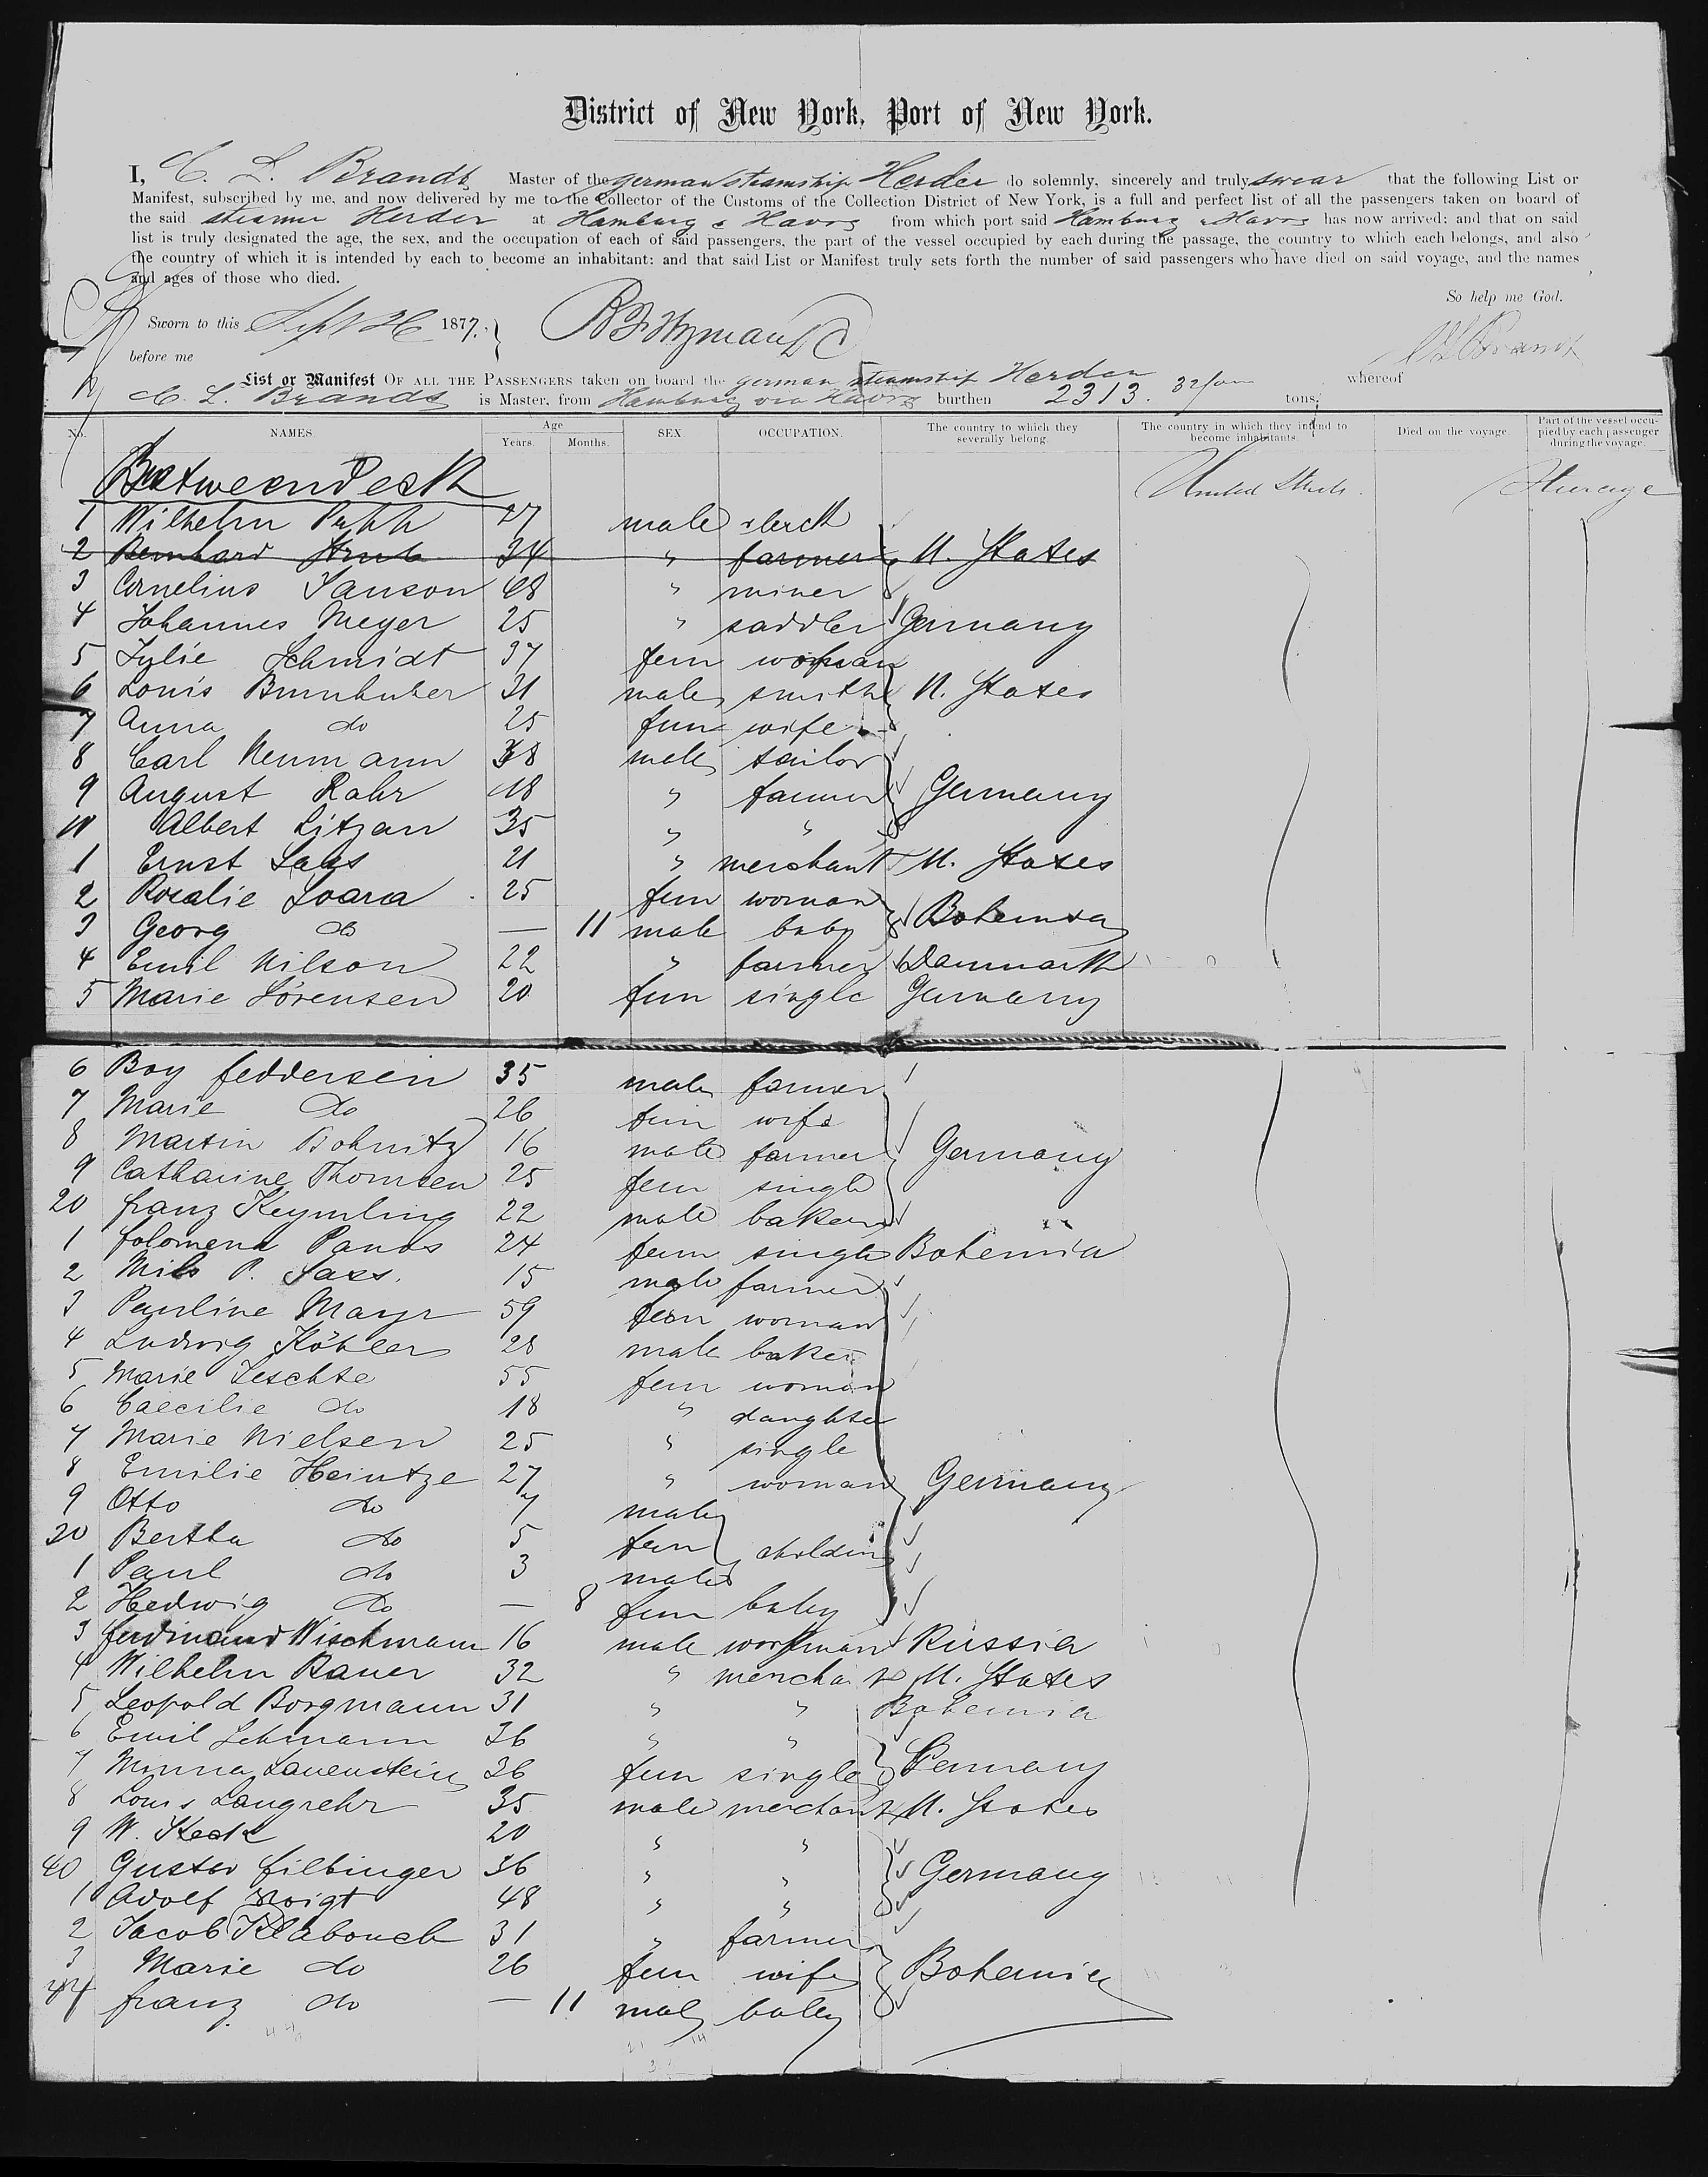 District of New York, Port of New York.
I, C. L. Brandt Master of the german steamship Herder do solemnly, sincerely and truly swear that the following List or
Manifest, subscribed by me, and now delivered by me to the Collector of the Customs of the Collection District of New York, is a full and perfect list of all the passengers taken on board of
the said steamer Herder at Hamburg & Havre from which port said Hamburg & Havre has now arrived: and that on said
list is truly designated the age, the sex, and the occupation of each of said passengers, the part of the vessel occupied by each during the passage, the country to which each belongs, and also
the country of which it is intended by each to become an inhabitant: and that said List or Manifest truly sets forth the number of said passengers who have died on said voyage, and the names
and ages of those who died.
So help me God.
Sworn to this Sept 26 1877.
before me
List or Manifest OF ALL THE PASSENGERS taken on board the german steamship Herder whereof
C. L. Brandt is Master, from Hamburg via Havre burthen 2313. tons.
No. NAMES. Age Years. Months. SEX. OCCUPATION. The country to which they severally belong. The country in which they intend to become inhabitants. Died on the voyage. Part of the vessel occupied by each passenger during the voyage
Between Deck United States. Steerage
1 Wilhelm 27 male clerck
2 Bernhard 34 " farmer U. States
3 Cornelius Janson 68 " miner
4 Johannes Meyer 25 " saddler Germany
5 Julie Schmidt 37 fem woman
6 Louis Brunhuber 31 male smith U. States
7 Anna do 25 fem wife
8 Carl Neumann 38 male sailor
9 August Rohr 18 " farmer Germany
10 Albert Litzan 35 " "
1 Ernst 21 " merchant U. States
2 Rosalie Soara 25 fem woman
3 Georg do — 11 male baby Bohemia
4 Emil Nilson 22 " farmer Danmark
5 Marie Sörensen 20 fem single Germany
6 Boy feddersen 35 male farmer
7 Marie do 26 fem wife
8 Martin Bohnitz 16 male farmer Germany
9 Catharine Thomsen 25 fem single
20 franz Keymling 22 male baker
1 folomena Panos 24 fem single Bohemia
2 Nils P. Sass. 15 male farmer
3 Pauline Mayr 59 fem woman
4 Ludwig Köhler 28 male baker
5 Marie Jeschke 55 fem woman
6 Caecilie do 18 " daughter
7 Marie Nielsen 25 " single
8 Emilie Heintze 27 " woman Germany
9 Otto do 7 male
30 Bertha do 5 fem children
1 Paul do 3 male
2 Hedwig do — 8 fem baby
3 ferdinand Wischmann 16 male workman Russia
4 Wilhelm Bauer 32 " merchant U. States
5 Leopold Borgmann 31 " " Bohemia
6 Emil Lehmann 36 " "
7 Minna Lauenstein 36 fem single Germany
8 Louis Langrehr 35 male merchant U. States
9 W. Keck 20 " "
40 Gustav filbinger 36 " " Germany
1 Adolf Voigt 48 " "
2 Jacob Klabouch 31 " farmer
3 Marie do 26 fem wife Bohemia
44 franz do — 11 male baby